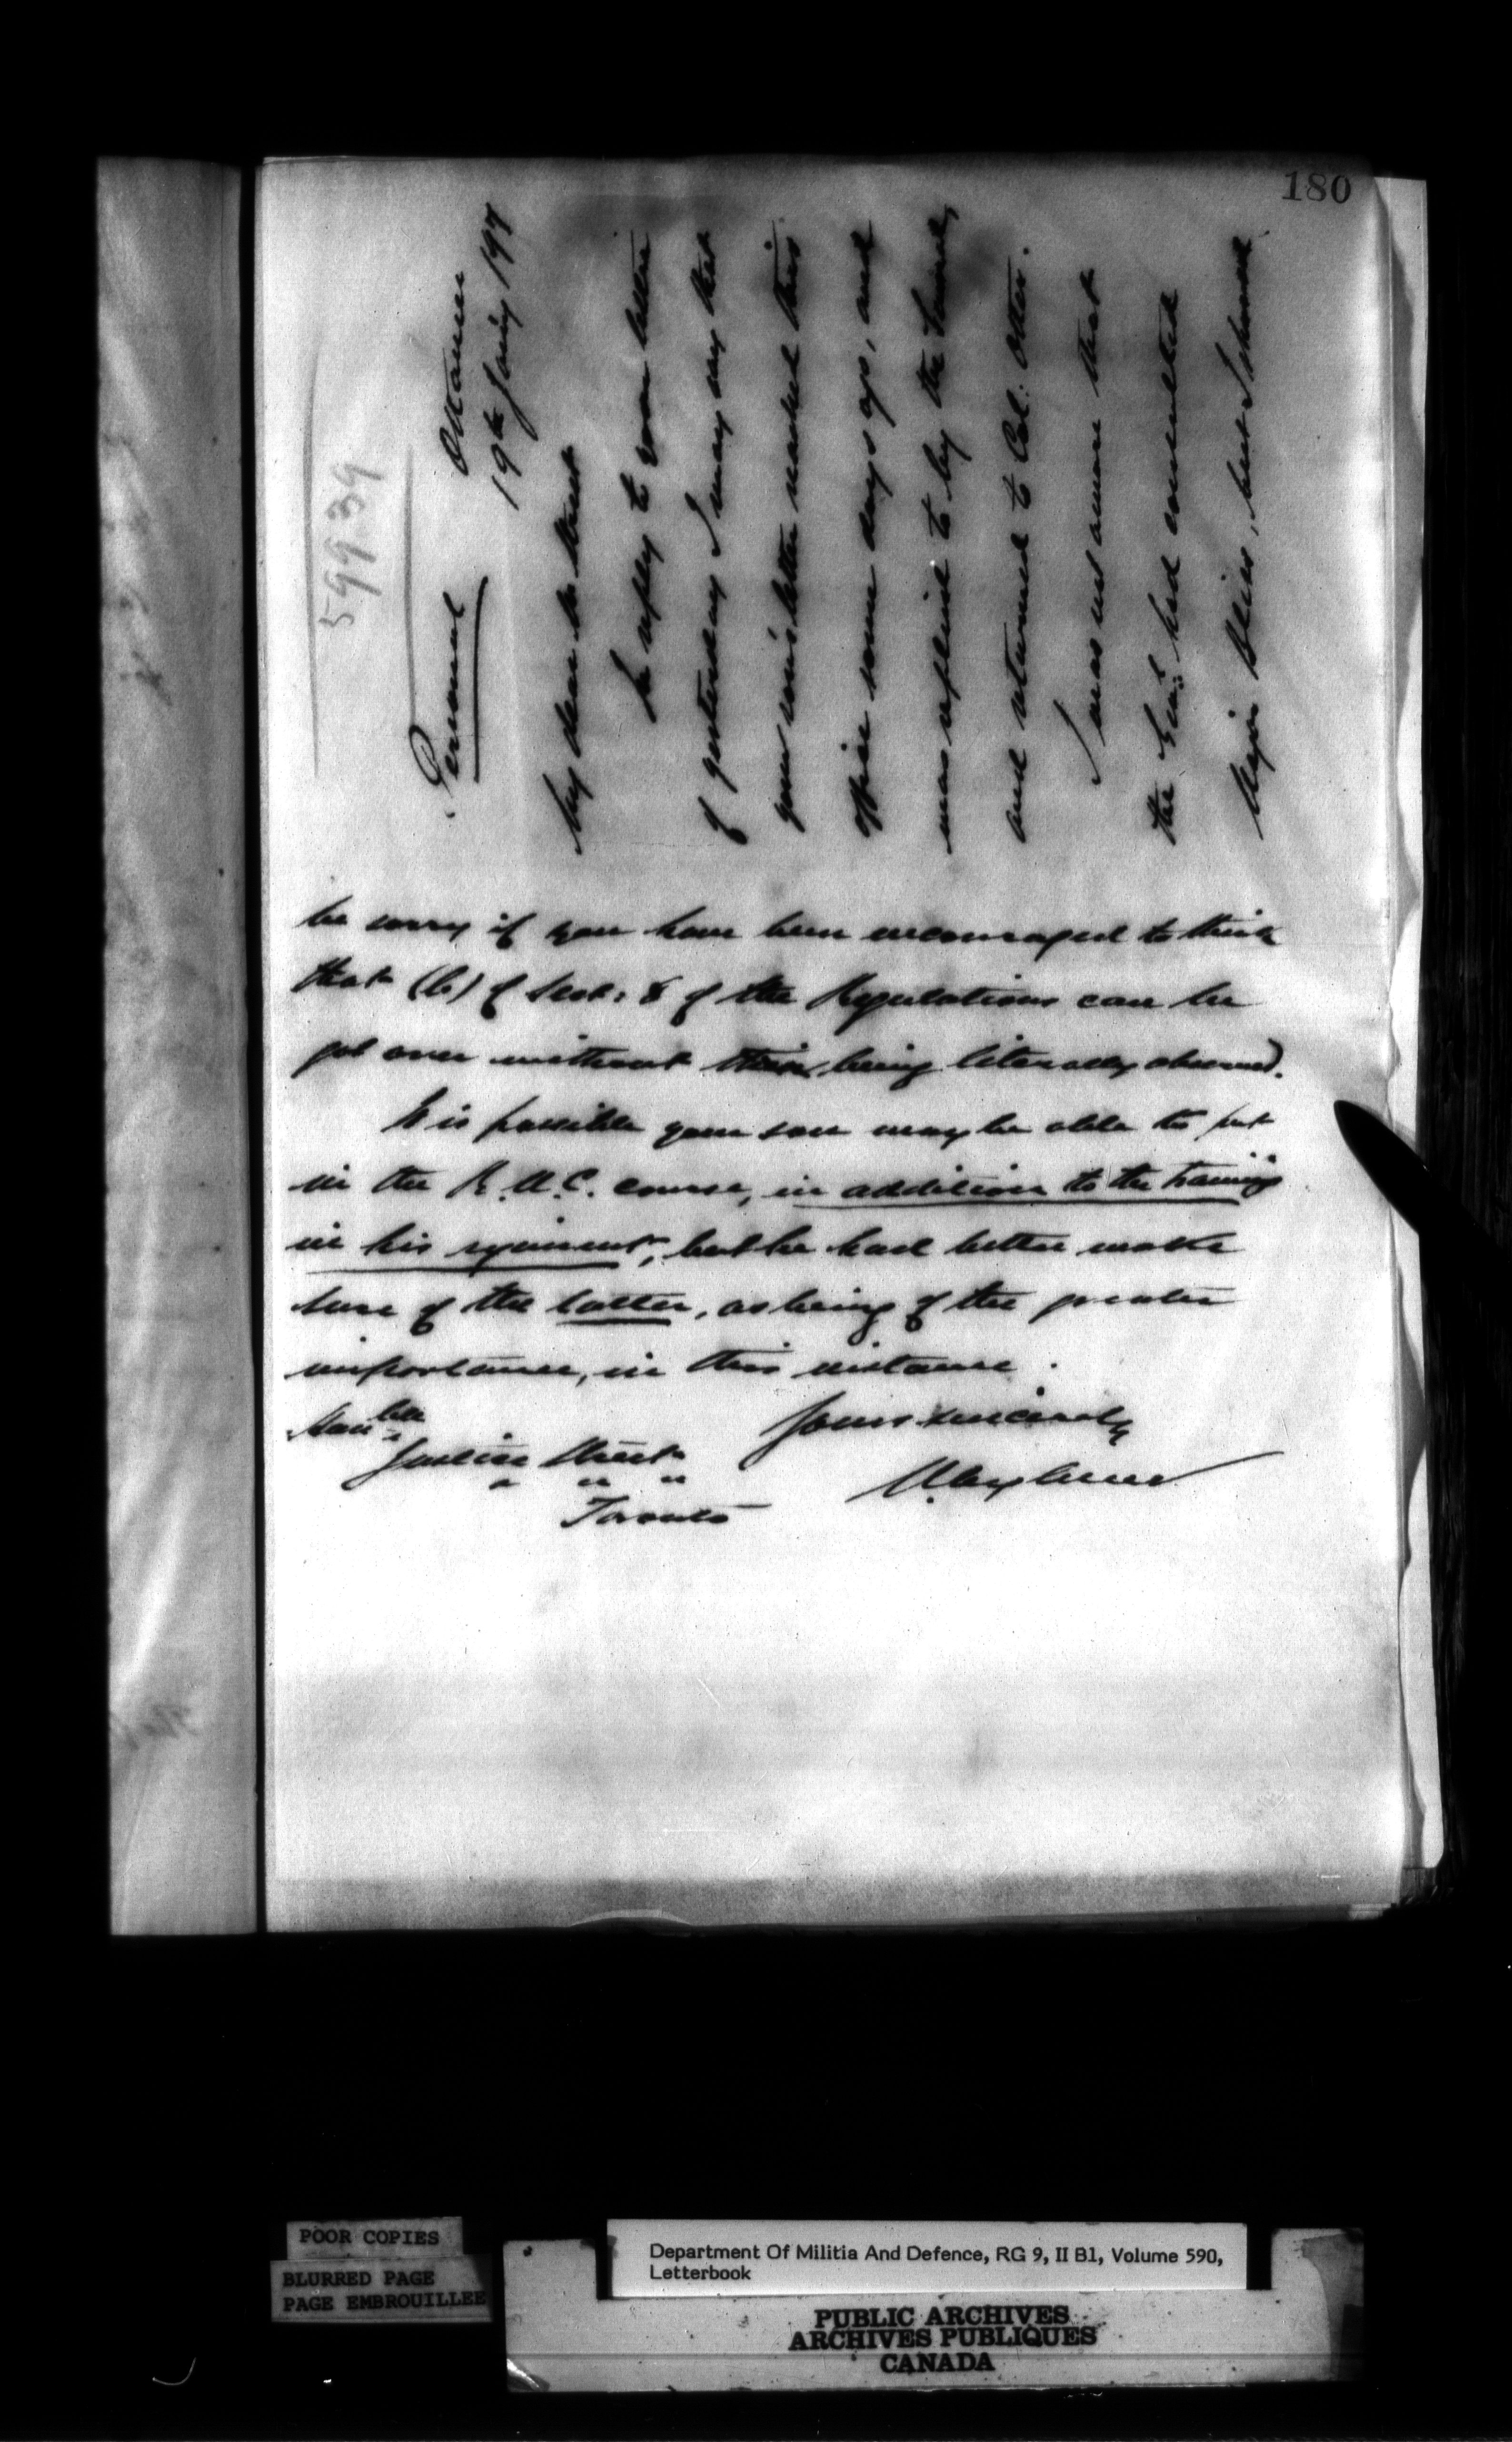 180
59939
Personal
Ottawa
19th Jan'y 1897
My dear Mr Street
In reply to your letter
of yesterday I may say that
your son's letter reached this
office some days ago, and
was replied to by the
and returned to Col: Otter.
I was not aware that
the Gen.l had consulted
Major Bliss, but I should
be sorry if you have been encouraged to think
that (b) of Sect: 8 of the Regulations can be
got over without being literally observed.
It is possible your son may be able to put
in the R.M.C. course, in addition to the training
in his regiment, but he had better make
sure of the latter, as being of the greater
importance, in this instance.
Yours sincerely
Honble
Justice Street
Toronto
POOR COPIES
BLURRED PAGE
PAGE EMBROUILLEE
Department Of Militia And Defence, RG 9, II B1, Volume 590,
Letterbook
PUBLIC ARCHIVES
ARCHIVES PUBLIQUES
CANADA